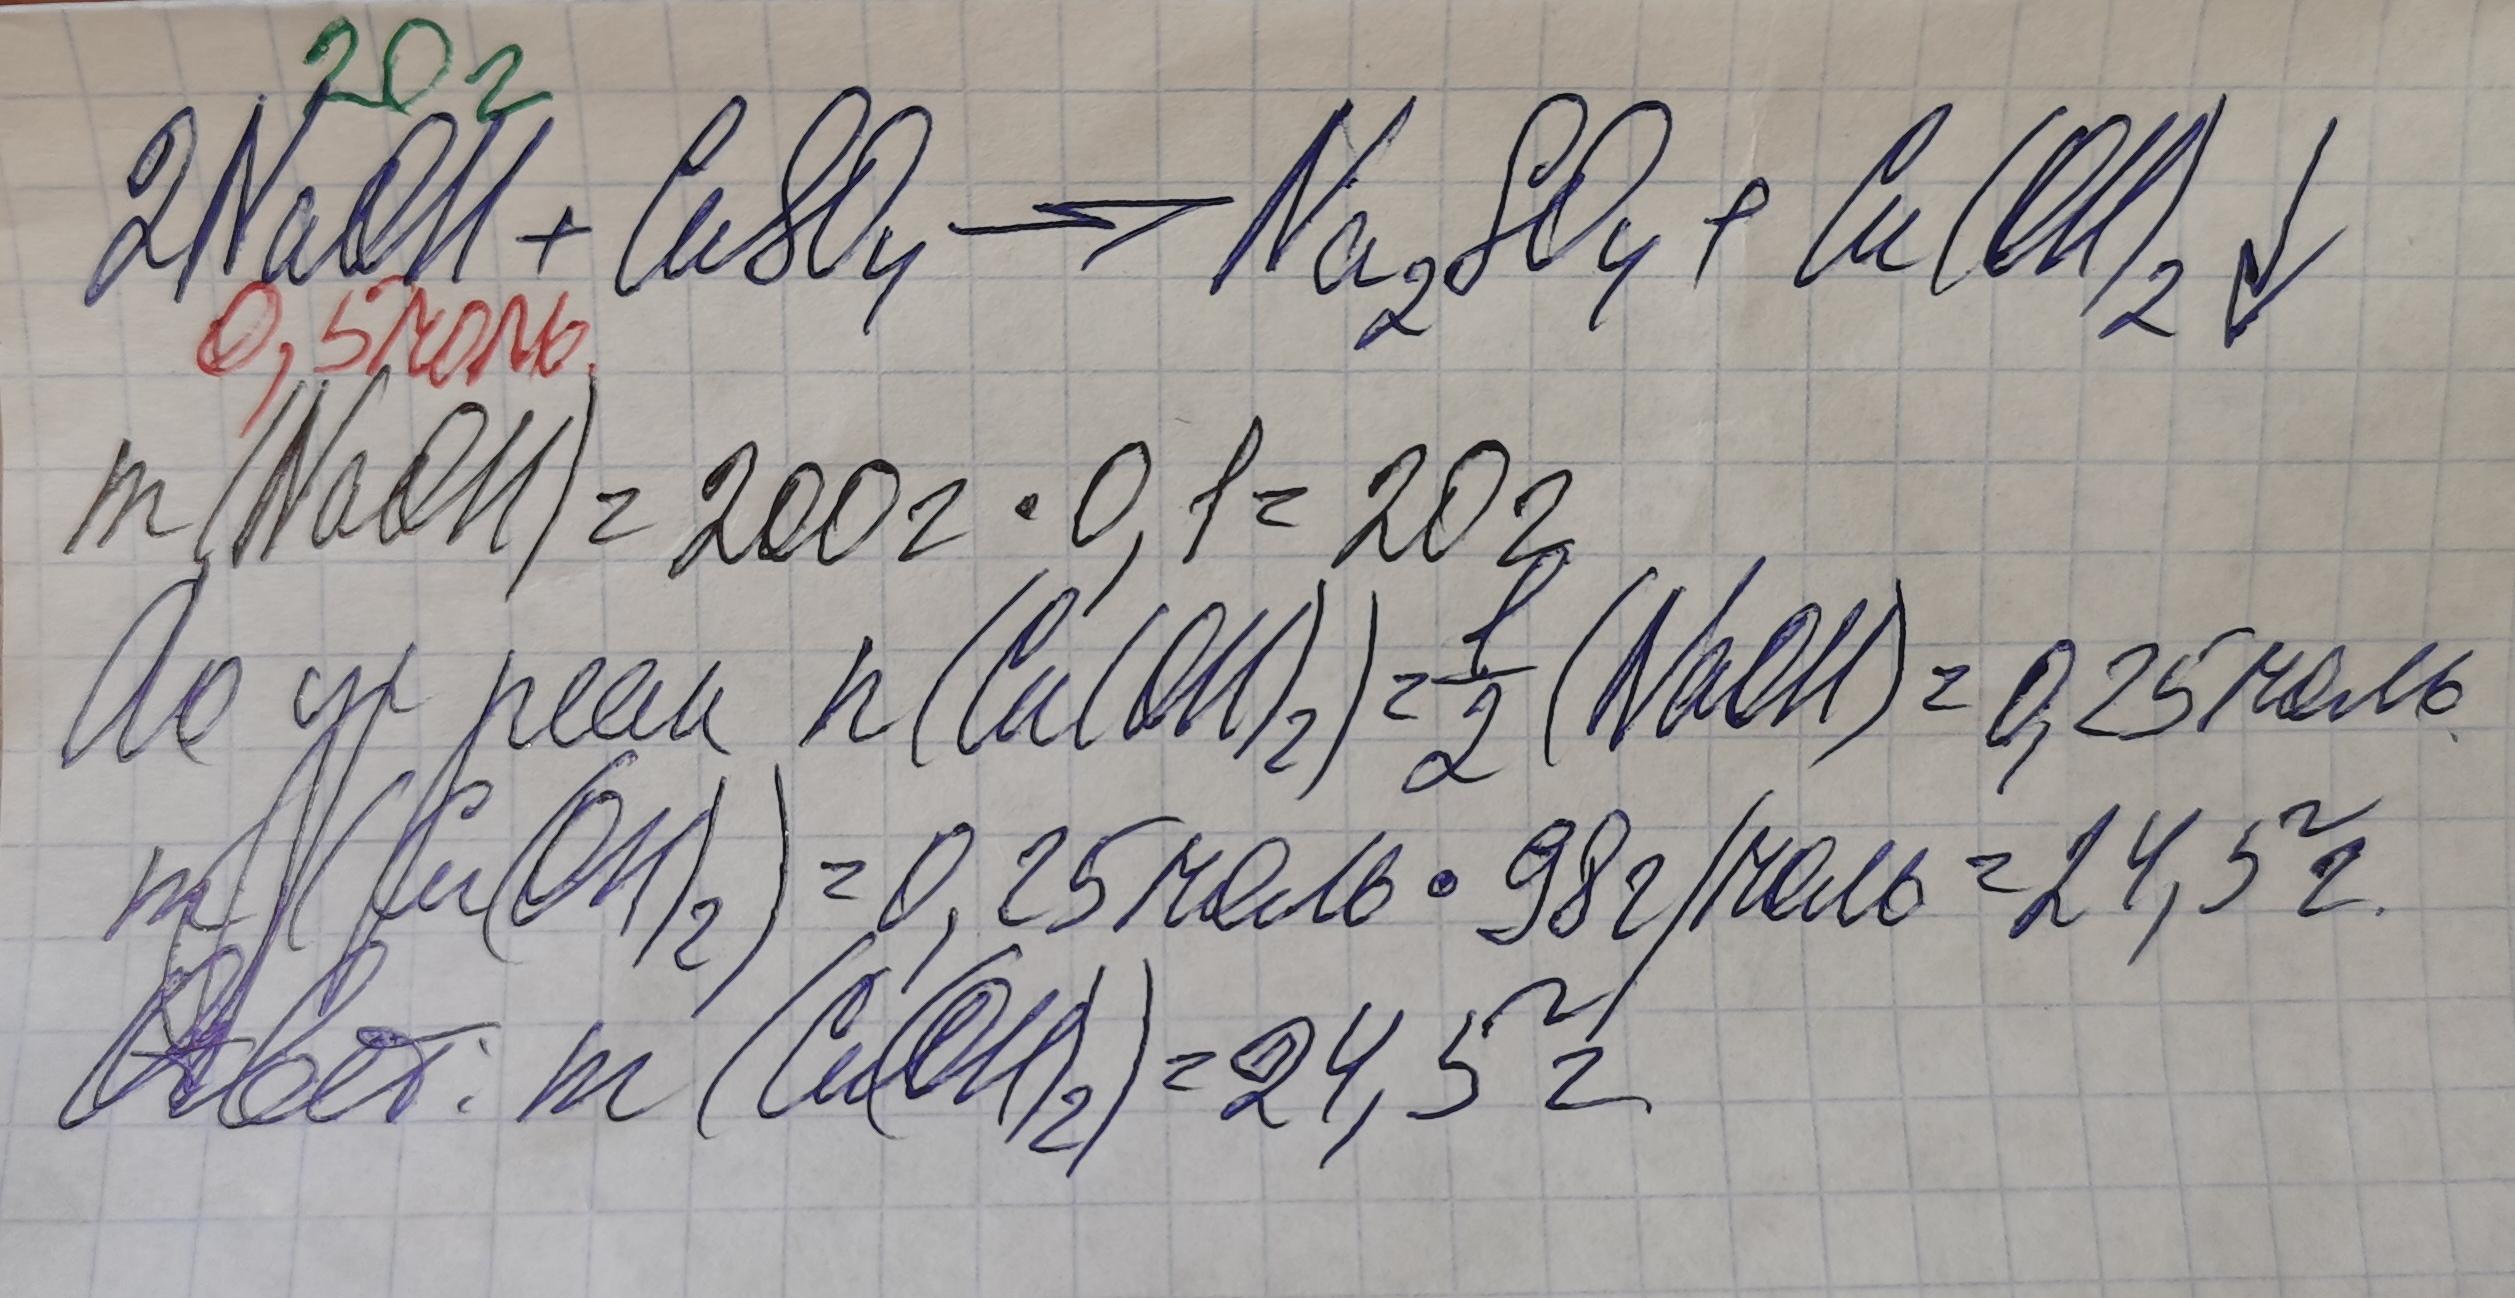 20г
2NaOH + CuSO₄ → Na₂SO₄ + Cu(OH)₂↓
0,5моль.
m(NaOH) = 200г · 0,1 = 20г
По ур реак n(Cu(OH)₂) = 1/2 (NaOH) = 0,25моль.
m(Cu(OH)₂) = 0,25моль · 98г/моль = 24,5г.
Ответ: m(Cu(OH)₂) = 24,5г